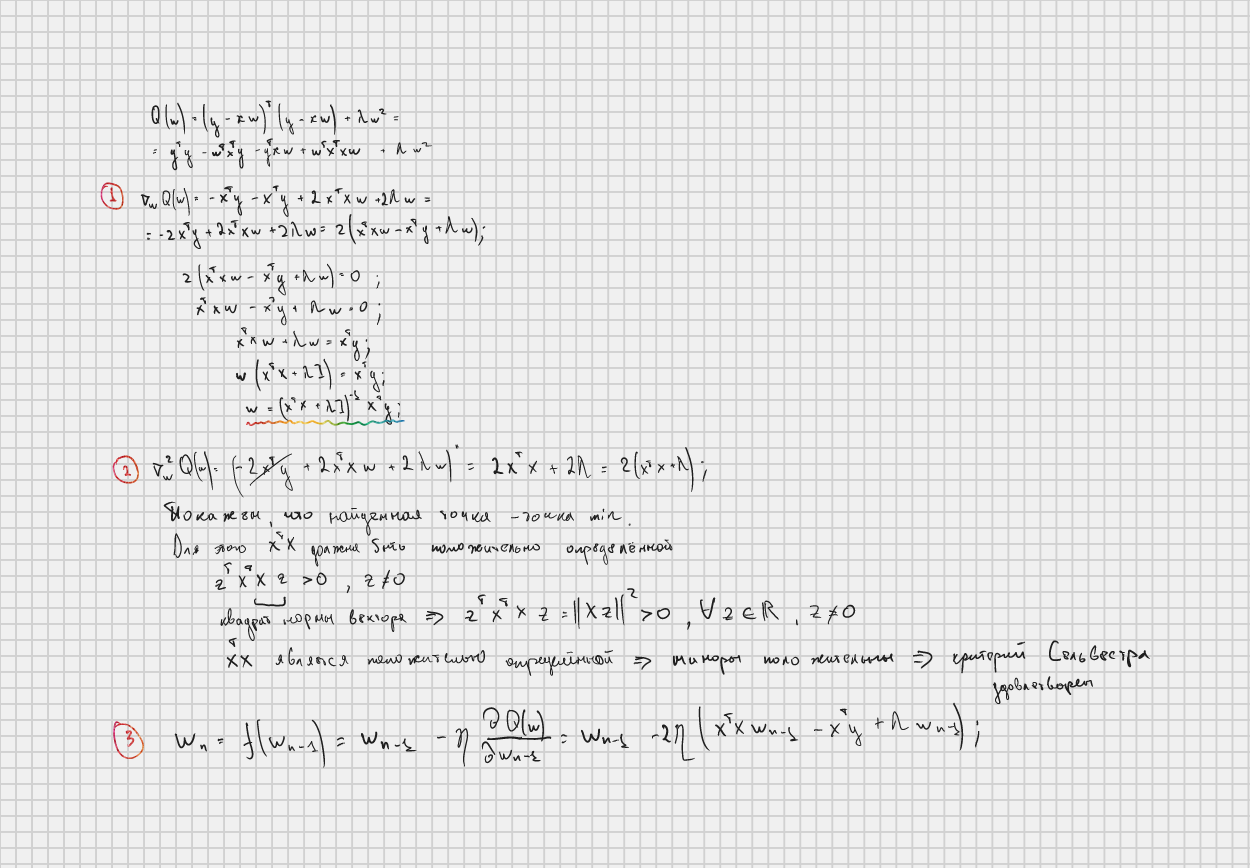 Q(w) = (y - xw)ᵀ(y - xw) + λw² =
= yᵀy - wᵀxᵀy - yᵀxw + wᵀxᵀxw + λw²
① ∇_w Q(w) = -xᵀy - xᵀy + 2xᵀxw + 2λw =
= -2xᵀy + 2xᵀxw + 2λw = 2(xᵀxw - xᵀy + λw);
2(xᵀxw - xᵀy + λw) = 0 ;
xᵀxw - xᵀy + λw = 0 ;
xᵀxw + λw = xᵀy;
w(xᵀx + λI) = xᵀy;
w = (xᵀx + λI)⁻¹ xᵀy;
② ∇²_w Q(w) = (-2xᵀy + 2xᵀxw + 2λw)' = 2xᵀx + 2λ = 2(xᵀx + λ) ;
Покажем, что найденная точка - точка min.
Для этого xᵀx должна быть положительно определённой
zᵀxᵀx z > 0 , z ≠ 0
квадрат нормы вектора ⇒ zᵀxᵀx z = ||Xz||² > 0 , ∀ z ∈ ℝ , z ≠ 0
xᵀx является положительно определённой ⇒ миноры положительны ⇒ критерий Сельвестра
удовлетворен
③ w_n = f(w_{n-1}) = w_{n-1} - η ∂Q(w)/∂w_{n-1} = w_{n-1} - 2η(xᵀx w_{n-1} - xᵀy + λ w_{n-1}) ;